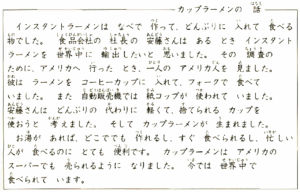 カップラーメンの 話
インスタントラーメンは なべで 作って、どんぶりに 入れて 食べる
物でした。 食品会社の 社長の 安藤さんは ある とき インスタント
ラーメンを 世界中に 輸出したいと 思いました。 その 調査の
ために、アメリカへ 行った とき、一人の アメリカ人を 見ました。
彼は ラーメンを コーヒーカップに 入れて、フォークで 食べて
いました。 また 自動販売機では 紙コップが 使われて いました。
安藤さんは どんぶりの 代わりに 軽くて、捨てられる カップを
使おうと 考えました。 そして カップラーメンが 生まれました。
お湯が あれば、どこででも 作れるし、すぐ 食べられるし、忙しい
人が 食べるのに とても 便利です。 カップラーメンは アメリカの
スーパーでも 売られるように なりました。 今では 世界中で
食べられて います。